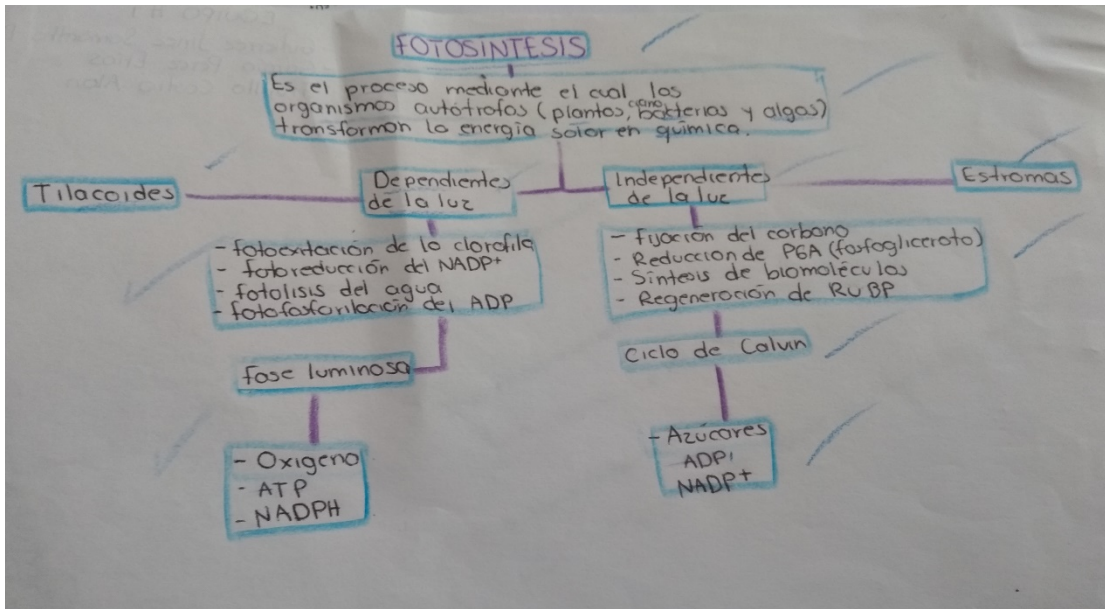 FOTOSINTESIS
Es el proceso mediante el cual los
organismos autótrofos (plantas, ciano bakterias y algas)
transforman la energía solar en química.
Tilacoides
Dependientes
de la luz
Independientes
de la luz
Estromas
- fotoexitación de la clorofila
- fotoreducción del NADP+
- fotolisis del agua
- fotofosforilación del ADP
- fijación del carbono
- Reduccion de PGA (fosfoglicerato)
- Síntesis de biomoléculas
- Regeneración de RUBP
fase luminosa
Ciclo de Calvin
- Oxigeno
- ATP
- NADPH
- Azúcares
ADP
NADP+